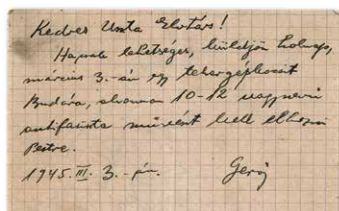 Kedves Uszta Elvtárs!
Ha csak lehetséges, küldjön holnap,
március 3.-án egy tehergépkocsit
Budára, ahonnan 10-12 nagynevű
antifasiszta művészt kell elhozni
Pestre.
1945. III. 3.-án.
Gerő